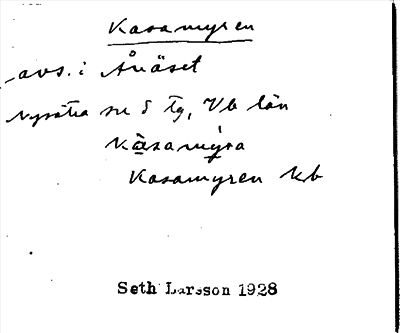 Kasamyren
avs. i Ånäset
Nysätra sn S tg, Vb län
Kasamyra
Kasamyren kb
Seth Larsson 1928